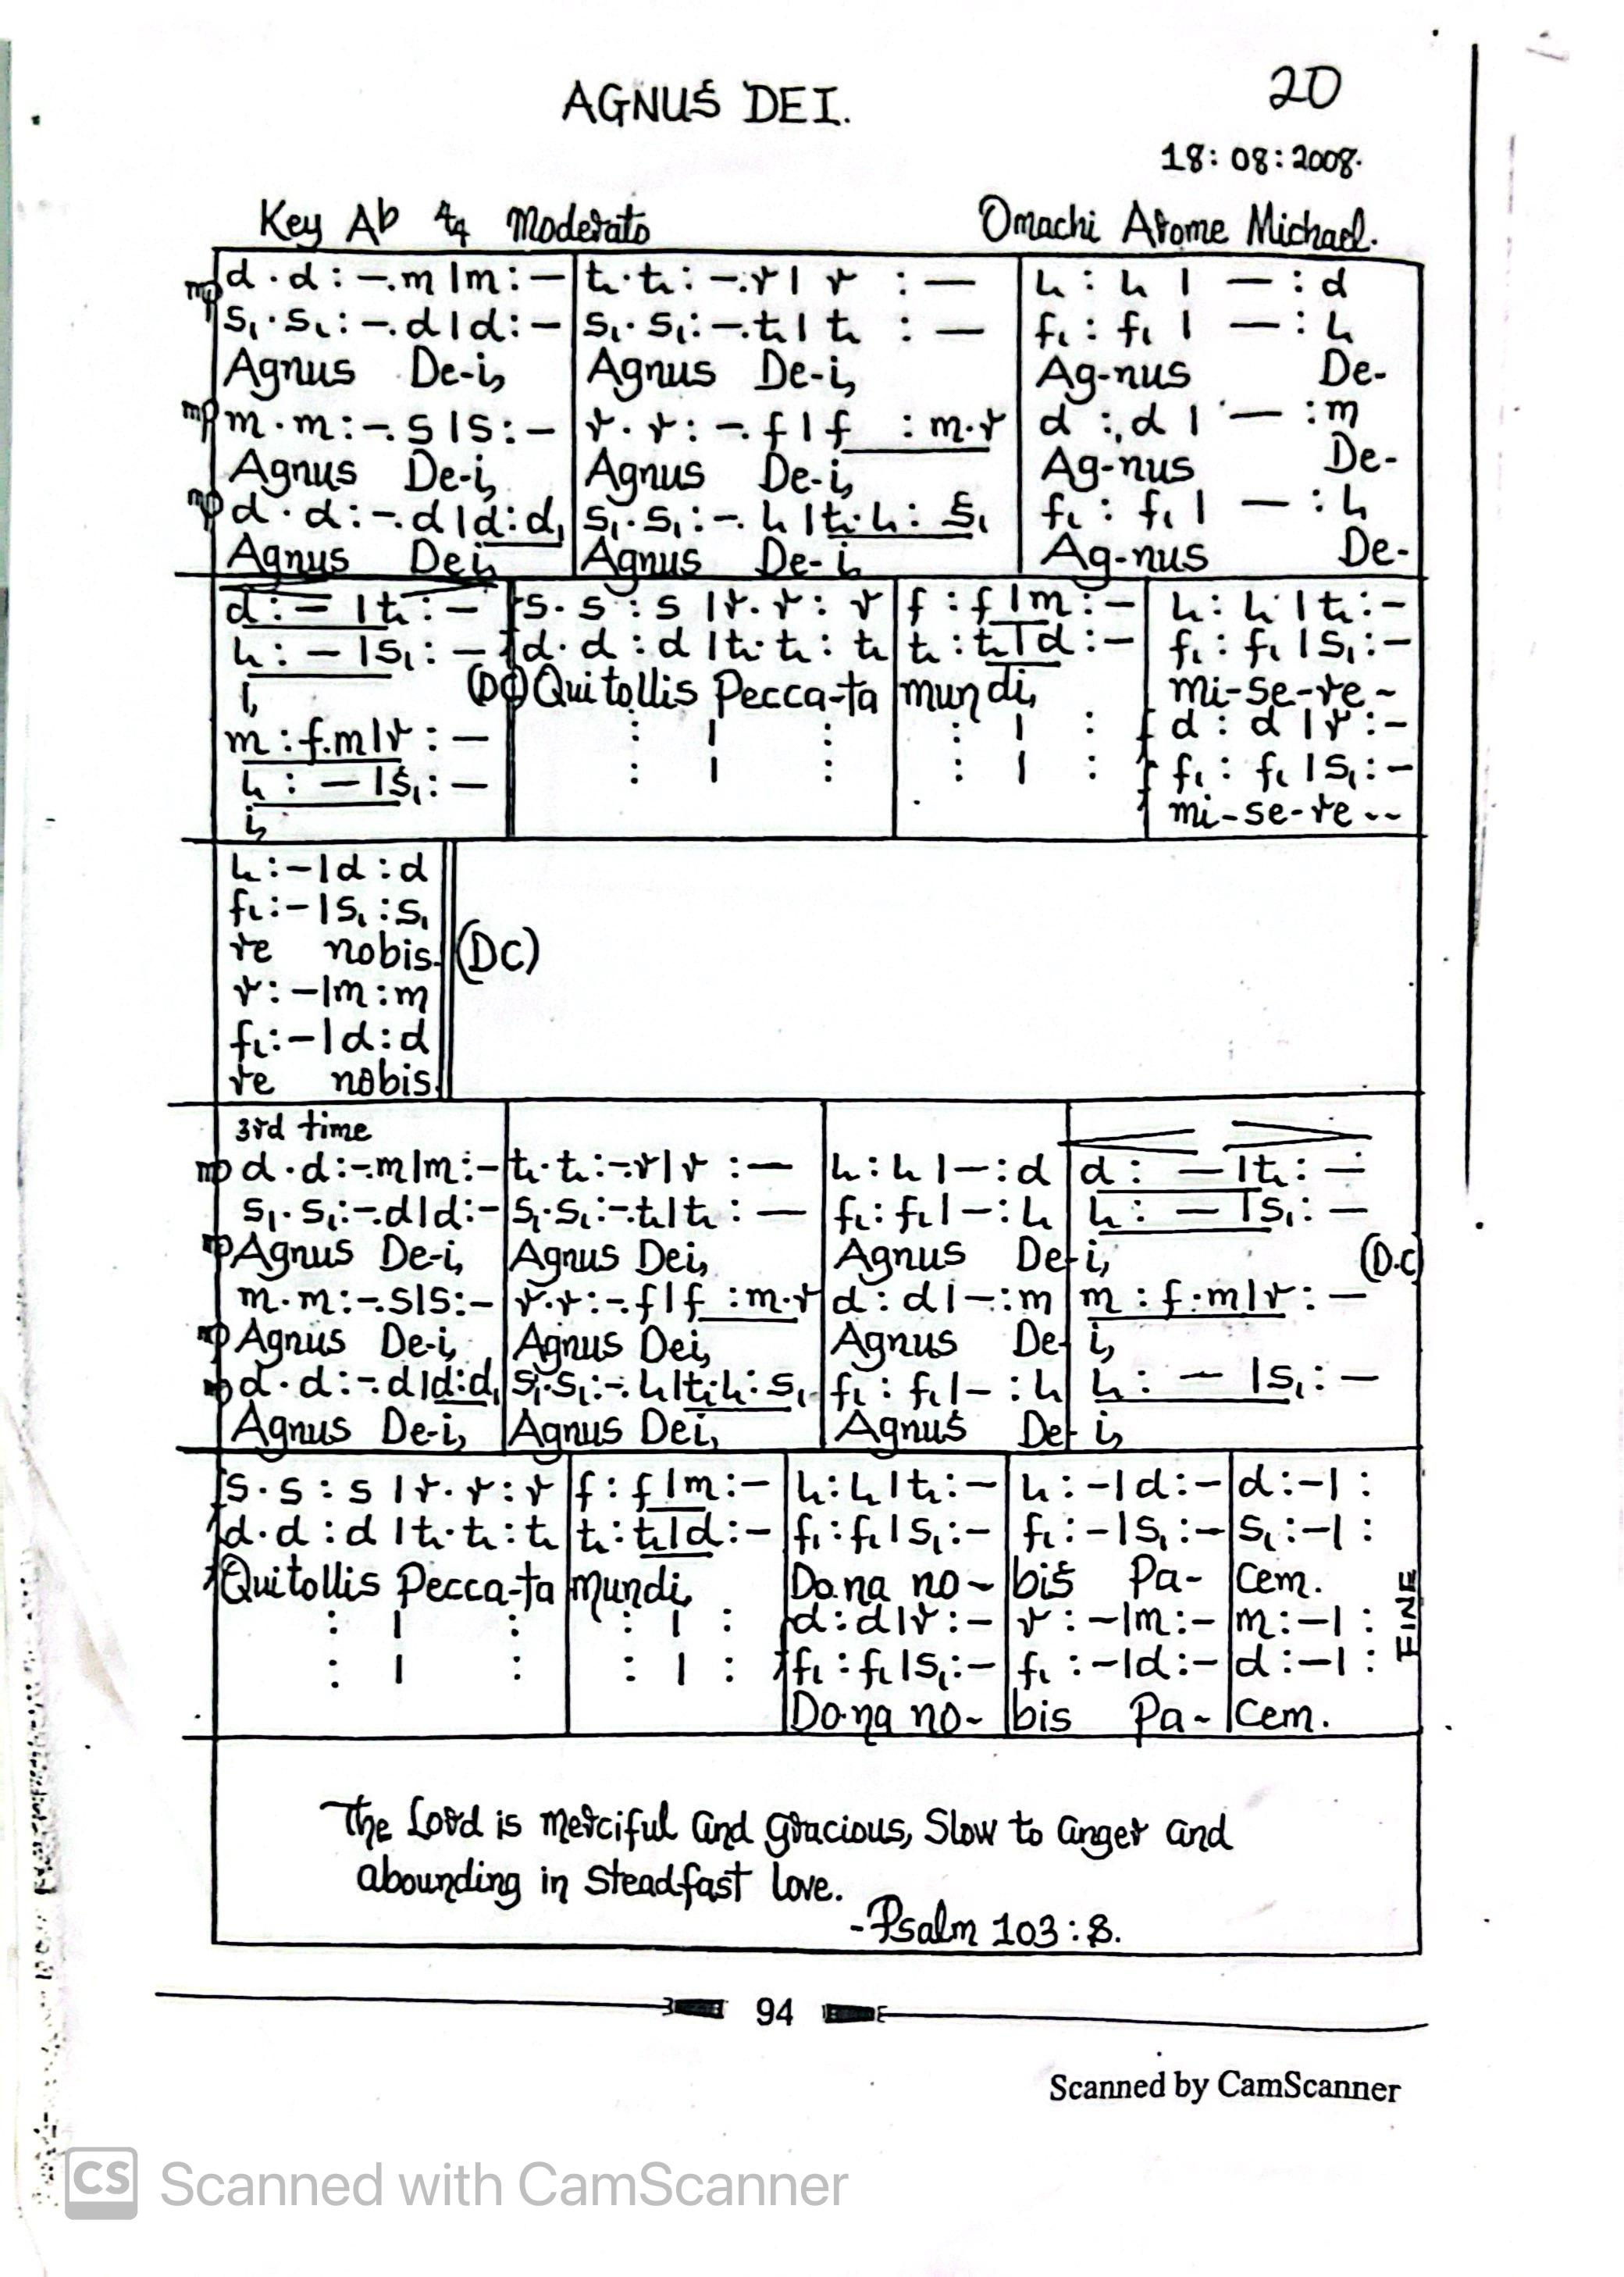 AGNUS DEI.
20
18:08:2008.
Key Ab 4/4 Moderato Omachi Arome Michael.
mp d . d : -. m | m : - t₁ . t₁ : -. r | r : - l₁ : l₁ | - : d
s₁ . s₁ : -. d | d : - s₁ . s₁ : -. t₁ | t₁ : - f₁ : f₁ | - : l₁
Agnus De-i, Agnus De-i, Ag-nus De-
mp m . m : -. s | s : - r . r : -. f | f : m . r d : d | - : m
Agnus De-i, Agnus De-i, Ag-nus De-
mp d . d : -. d | d : d₁ s₁ . s₁ : -. l₁ | t₁ . l₁ : s₁ f₁ : f₁ | - : l₁
Agnus Dei, Agnus De-i, Ag-nus De-
d : - | t₁ : - s . s : s | r . r : r f : f | m : - l₁ : l₁ | t₁ : -
l₁ : - | s₁ : - d . d : d | t₁ . t₁ : t₁ t₁ : t₁ | d : - f₁ : f₁ | s₁ : -
i, (DC) Qui tollis Pecca-ta mundi, mi-se-re-
m : f . m | r : - : | : : | : d : d | r : -
l₁ : - | s₁ : - : | : : | : f₁ : f₁ | s₁ : -
i, mi-se-re--
l₁ : - | d : d
f₁ : - | s₁ : s₁
re nobis. (DC)
r : - | m : m
f₁ : - | d : d
re nobis.
3rd time
mp d . d : -. m | m : - t₁ . t₁ : -. r | r : - l₁ : l₁ | - : d d : - | t₁ : -
s₁ . s₁ : -. d | d : - s₁ . s₁ : -. t₁ | t₁ : - f₁ : f₁ | - : l₁ l₁ : - | s₁ : -
mp Agnus De-i, Agnus Dei, Agnus De-i, (D.C)
m . m : -. s | s : - r . r : -. f | f : m . r d : d | - : m m : f . m | r : -
mp Agnus De-i, Agnus Dei, Agnus De-i,
mp d . d : -. d | d : d₁ s₁ . s₁ : -. l₁ | t₁ . l₁ : s₁ f₁ : f₁ | - : l₁ l₁ : - | s₁ : -
Agnus De-i, Agnus Dei, Agnus De-i,
s . s : s | r . r : r f : f | m : - l₁ : l₁ | t₁ : - l₁ : - | d : - d : - | :
d . d : d | t₁ . t₁ : t₁ t₁ : t₁ | d : - f₁ : f₁ | s₁ : - f₁ : - | s₁ : - s₁ : - | :
Qui tollis Pecca-ta mundi, Do.na no- bis Pa- cem.
: | : : | : d : d | r : - r : - | m : - m : - | : FINE
: | : : | : f₁ : f₁ | s₁ : - f₁ : - | d : - d : - | :
Do.na no- bis Pa- cem.
The Lord is merciful and gracious, Slow to anger and
abounding in Steadfast love.
-Psalm 103:8.
94
Scanned by CamScanner
CS Scanned with CamScanner